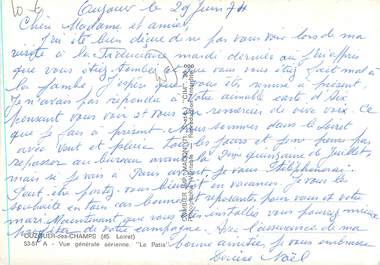 le 29 Juin 74
Chère Madame et amie,
J'ai été bien déçue de ne pas vous voir lors de ma
visite à la mardi dernier où j'ai appris
que vous étiez tombée et que vous vous étiez fait mal à
la jambe. J'espère que vous êtes remise à présent
Je n'avais pas répondu à votre aimable carte d'Aix
pensant vous voir et vous en remercier de vive voix. Ce
que je fais à présent. Nous sommes dans le Loiret
avec vent et pluie tous les jours et je ne pense pas
repasser au bureau avant la 2me quinzaine de Juillet,
mais si je vais à Paris avant, je vous téléphonerai.
Peut-être partez-vous bientôt en vacances? Je vous les
souhaite en tous cas bonnes et reposantes, pour vous et votre
mari. Maintenant que vous êtes installés vous pouvez mieux
profiter de votre campagne. Avec l'assurance de ma
bonne amitié, je vous embrasse
Noël
OUZOUER-des-CHAMPS (45. Loiret)
53-51 A - Vue générale aérienne. "Le Patis"